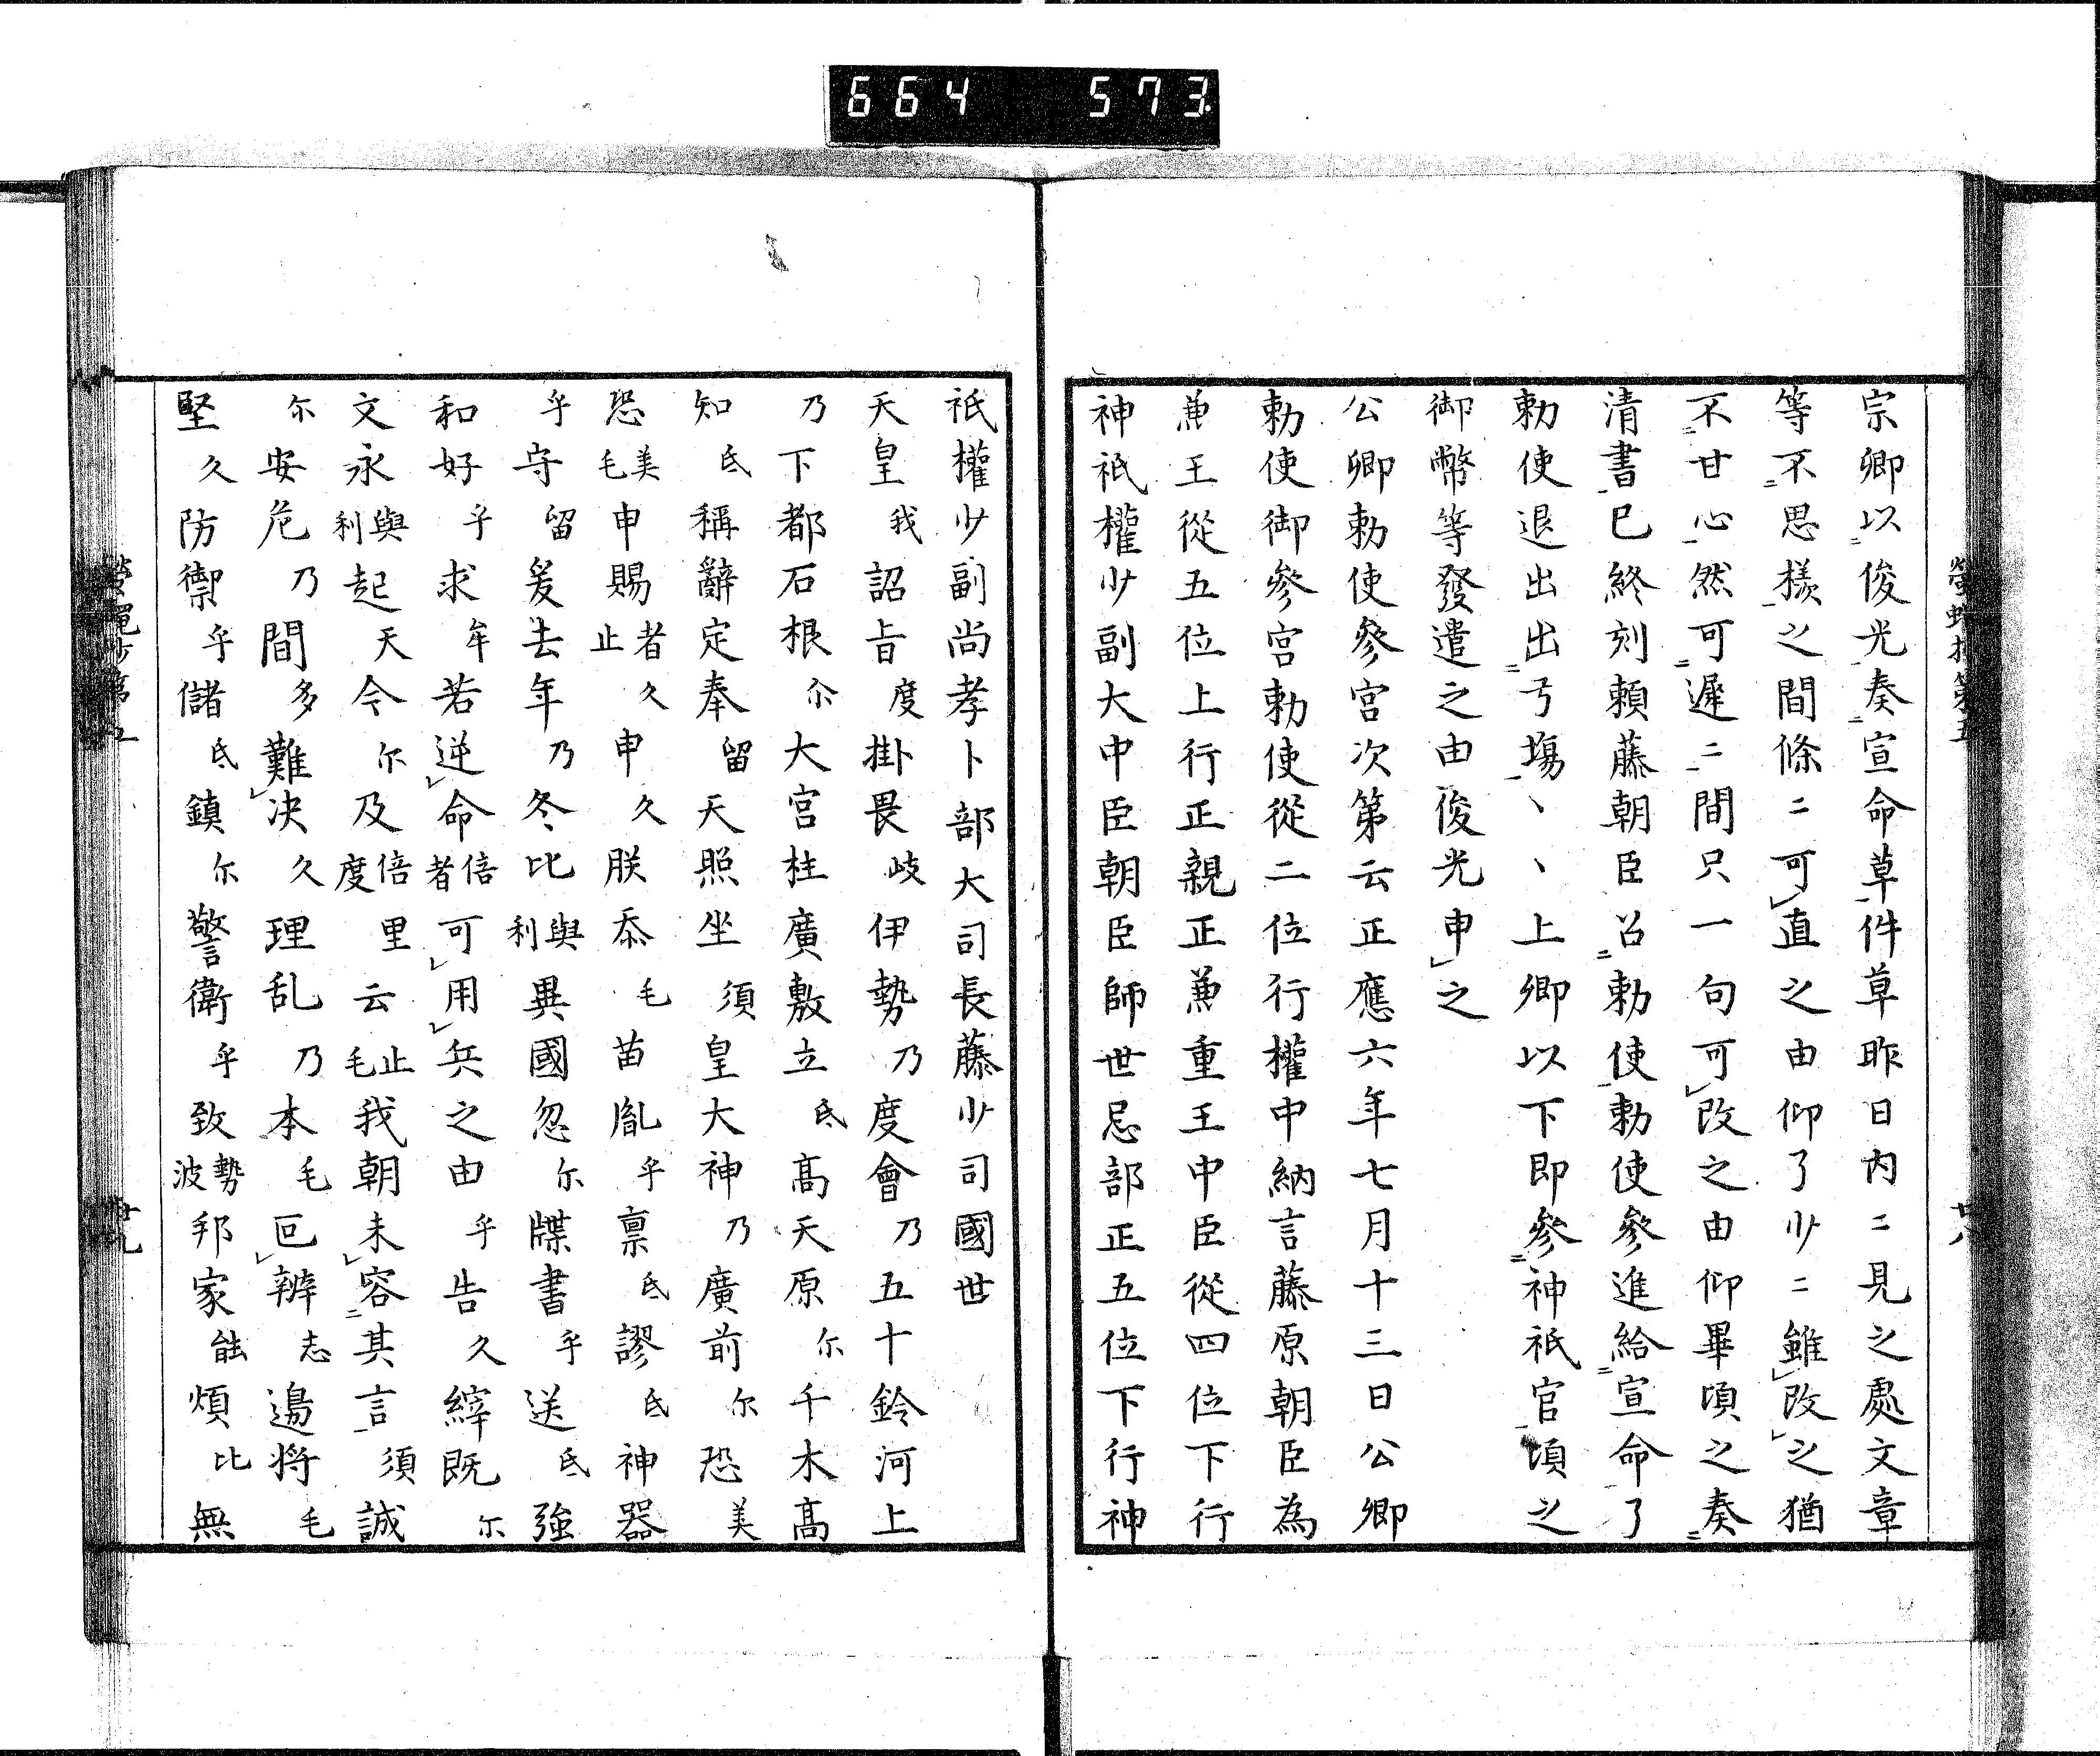 664 573
宗卿以俊光奏宣命草件草昨日内ニ見之處文章
等不思樣之間條ニ可直之由仰了少ニ雖改之猶
不甘心然可遲ニ間只一句可改之由仰畢頃之奏
清書已終刻頼藤朝臣召勅使勅使參進給宣命了
勅使退出出弓場丶丶上卿以下即參神祇官頃之
御幣等發遣之由俊光申之
公卿勅使參宮次第云正應六年七月十三日公卿
勅使御參宮勅使從二位行權中納言藤原朝臣為
兼王從五位上行正親正兼重王中臣從四位下行
神祇權少副大中臣朝臣師世忌部正五位下行神
祇權少副尚孝卜部大司長藤少司國世
天皇我詔旨度掛畏岐伊勢乃度會乃五十鈴河上
乃下都石根尒大宮柱廣敷立氐高天原尓千木高
知氐稱辭定奉留天照坐須皇大神乃廣前尓恐美
恐美毛申賜者止久申久朕忝毛苗胤乎禀氐謬氐神器
乎守留爰去年乃冬比與利異國忽尓牒書乎送氐強
和好乎求牟若逆命倍者可用兵之由乎告久縡既尓
文永與利起天今尓及倍度里云止毛我朝未容其言須誠
尓安危乃間多難决久理乱乃本毛叵辨志邊将毛
堅久防禦乎儲氐鎮尓警衛乎致勢波邦家能煩比無